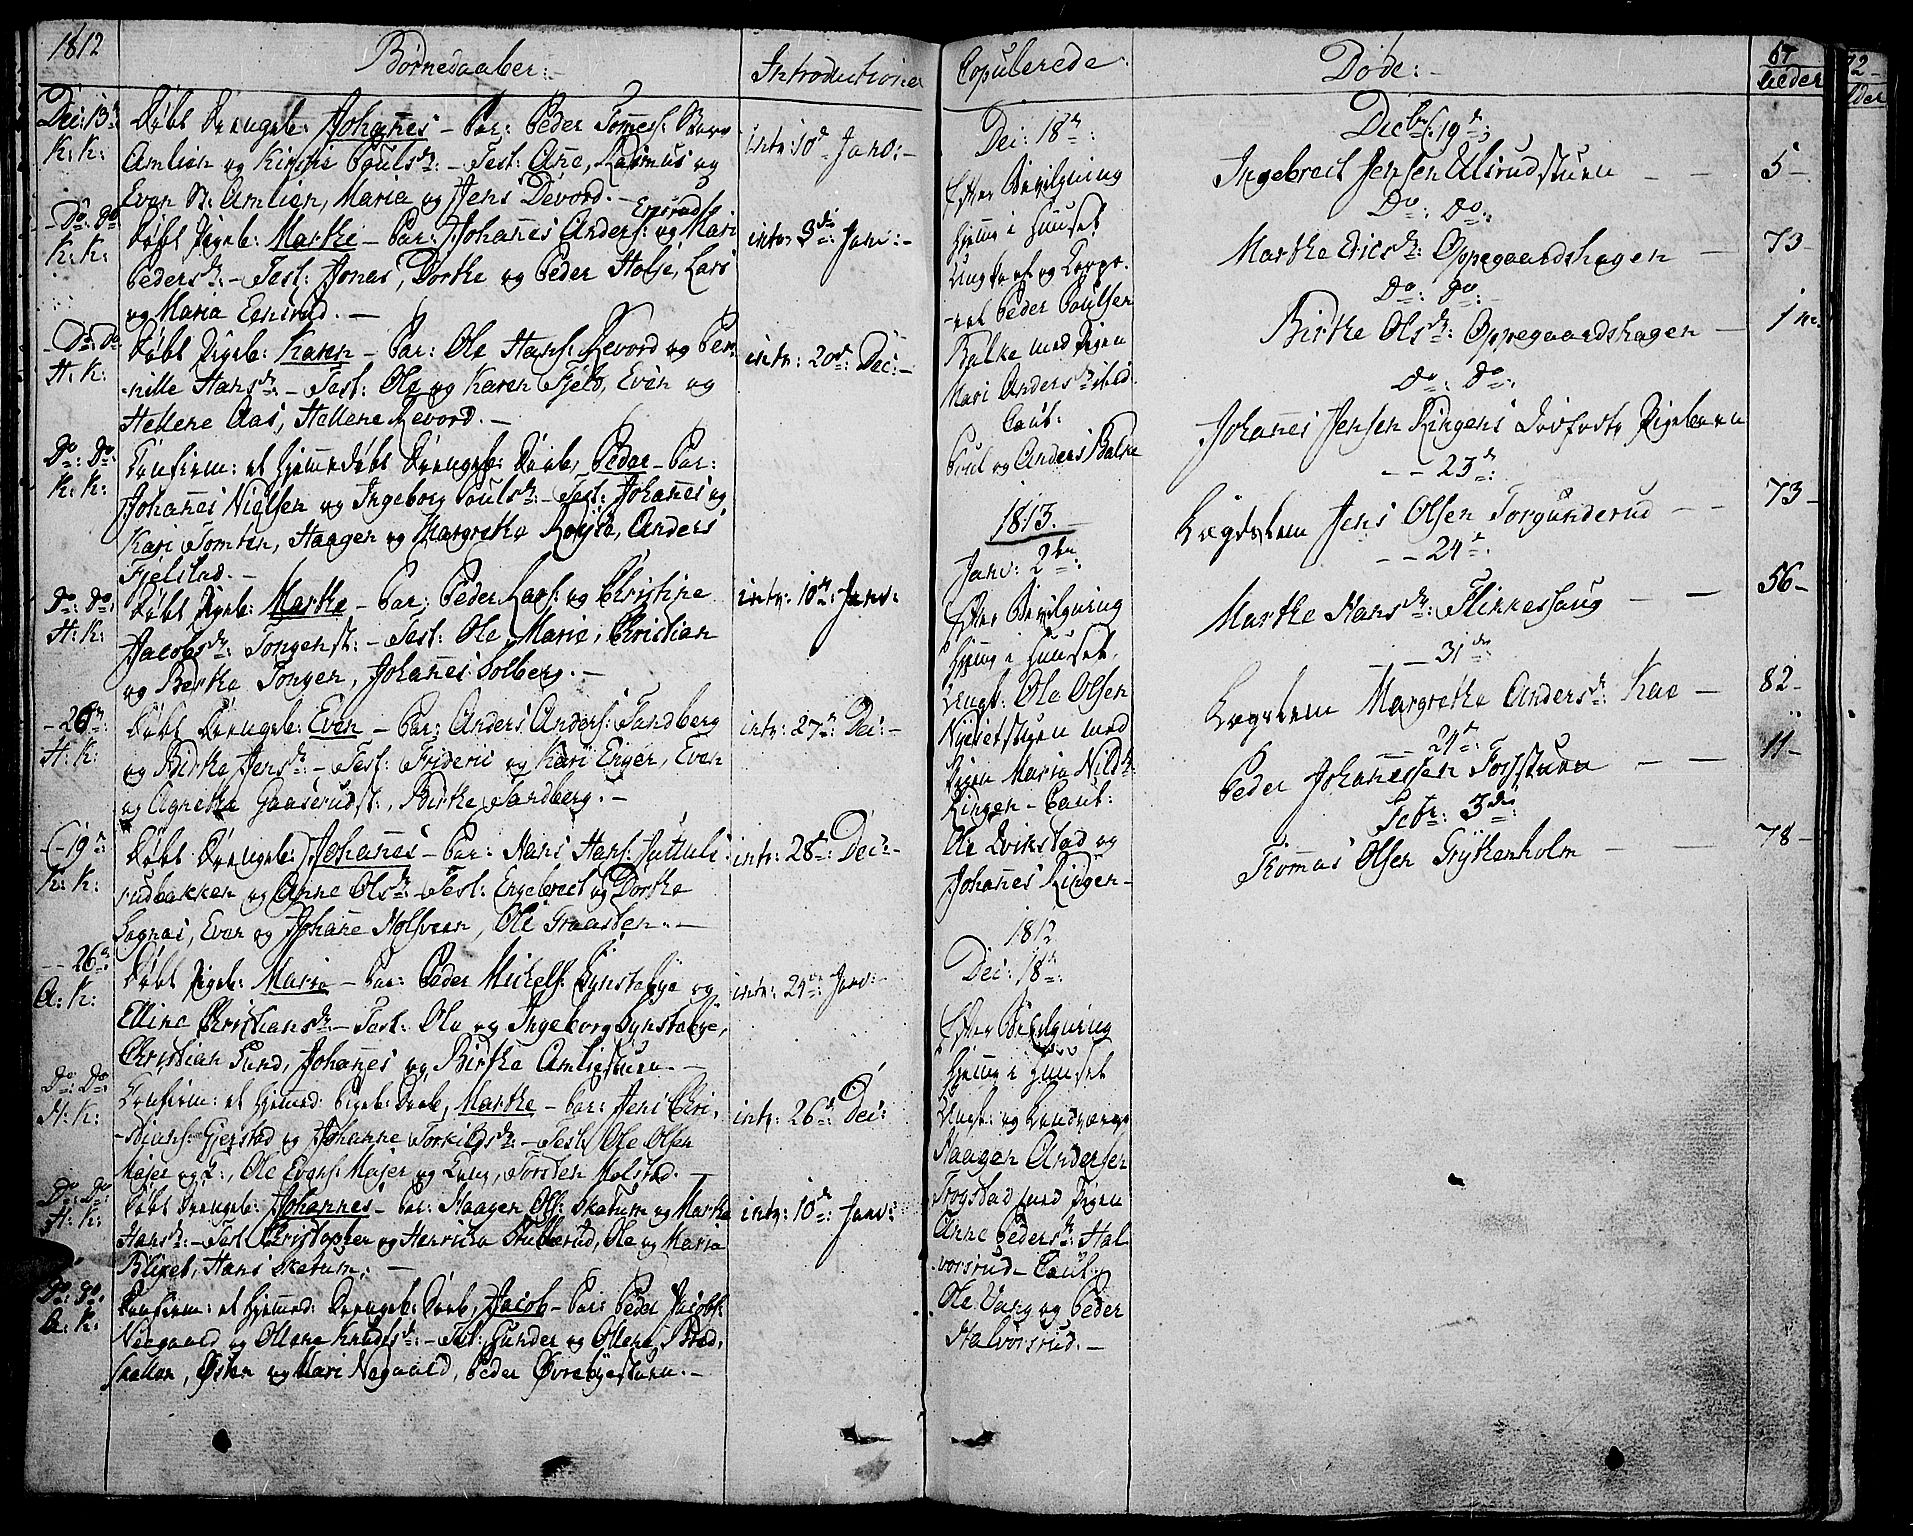 1812
Børnedaaber:-
Introductione
Dei: 13de
K: K:
Døbt Drengeb: Johanes - Par: Peder Tomes:
Amlien og Kirstie Pouls dr: - Test: Ane, Rasmus og
Even St: Amlien, Maria og Jens Devord. -
intr: 10de Janv: -
Do: Do
K: K:
Eensrud
Døbt Pigeb: Marthe - Par: Johanes Anders: og Mari
Peders dr: - Test: Jonas, Dorthe og Peder Holje, Lars
og Maria Eensrud. -
intr: 3die Janv: -
Do: Do
H: K:
Døbt Pigeb: Karen - Par: Ole Hans: Revord og Per-
nille Hans dr: - Test: Ole og Karen Fjelb, Even og
Hellene Aas, Hellene Revord. -
intr: 20de Dei: -
Do: Do:
K: K:
Confirm: et hjemmedøbt Drengeb: Daab, Peder - Par:
Johanes Nielsen og Ingeborg Pouls dr: - Test: Johanes og
Kari Tomten, Haagen og Margrethe Røyse, Anders
Fjelstad. -
Do: Do:
H: K:
Døbt Pigeb: Marthe - Par: Peder Lars: og Christine
Jacobs dr: Tongenst: - Test: Ole, Marie, Christian
og Berthe Tongen, Johanes Solberg. -
intr: 10de: Janv:
- 26de:
H: K:
Døbt Drengeb: Even - Par: Anders Anders: Sandberg
og Birthe Jens dr: - Test: Frideric og Kari Enger, Even
og Agnethe Gaaserudst:, Birthe Sandberg. -
intr: 27de: Dei: -
- 19de:
K: K:
Døbt Drengeb: Johanes - Par: Hans Hans: Juttuls
rudbakken og Anne Ols dr: - Test: Engebrect og Dorthe
Sognas, Even og Johane Holsveen, Ole Graasten. -
intr: 28de: Dei: -
- 26de
A: K:
Døbt Pigeb: Maria - Par: Peder Michels: Gynstebye og
Elline Christians dr: - Test: Ole og Ingeborg Gynstebye,
Christian Sund, Johanes og Birthe Amliestuen -
intr: 24de: Janv: -
Do: Do:
H: K:
Confirm: et hjemmed: Pigeb: Daab, Marthe - Par: Jens Chri-
-stians: Gjerstad og Johanne Torkilds dr: - Test: Ole Olsen
Majer og K:, Ole Evens: Majer og Kone, Torsten Molstad. -
intr: 26de: Dei:
Do: Do:
H: K:
Døbt Drengeb: Johannes - Par: Haagen Ols: Skatum og Marthe
Hans dr: - Test: Christopher og Henricha Stubberud, Ole og Maria
Blixet, Hans Skatum: -
intr: 10de: Janv:
Do: Do:
A: K:
Confirm: et hjemmed: Drengeb: Daab, Jacob - Par: Peder Jacobs:
Nøegaard og Ollene Knuds dr: - Test: Gunder og Ollene
Østen og Mari Nøgaard, Peder Øvrebyestuen. -
Copulerede
Dei: 18de:
Efter Bevilgning
hjemme i Huuset
Ungkarl og Corpo-
-ral Peder Poulsen
Balke med Pigen
Mari Anders dr: ibid.
Caut:
Poul og Anders Balke
1813.
Janv: 2den:
Efter Bevilgning
hjeme i Huuset.
Ungk: Ole Olsen
med
Pigen Maria Nils dr:
Ringen - Caut:
Ole Evikstad og
Johanes Ringen -
1812
Dei: 18de:
Efter Bevilgning
hjemme i Huuset
Ungk: og Landværns
Haagen Andersen
Trogstad med Pigen
Anne Peders dr: Hal-
vorsrud - Caut:
Ole Vang og Peder
Halvorsrud. -
Døde: -
67
Alder
Decbr: 19de:
Ingebrect Jensen Ulsrudstuen - - 5 -
Do: Do:
Marthe Erics dr: Oppegaardshagen - 73 -
Do: Do:
Birthe Ols dr: Oppegaardshagen - 1
Do: Do:
Johanes Jensen Ringens Dødfødte Pigebarn
- - 23de:
Lægdslem Jens Olsen Torgunderud - - 73 -
- - 24de:
Marthe Hans dr: Flikkeshaug - - 56 -
- - 31de
Lægdslem Margrethe Anders dr: Kae - 82 -
- - 24de:
Peder Johanessen Fossstuen - - 11 -
Febr: 3die:
Thomas Olsen Grythenholm - - 78 -